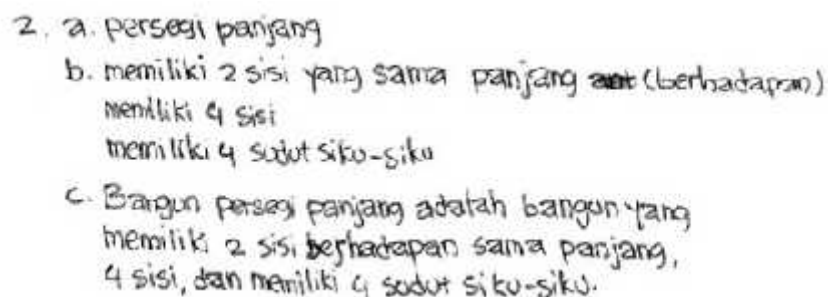 2. a. persegi panjang
b. memiliki 2 sisi yang sama panjang (berhadapan)
memiliki 4 sisi
memiliki 4 sudut siku-siku
c. Bangun persegi panjang adalah bangun yang
memiliki 2 sisi berhadapan sama panjang,
4 sisi, dan memiliki 4 sudut siku-siku.